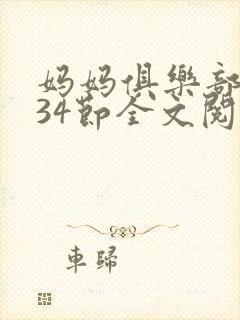 妈妈俱樂部
34節全文閱
車歸